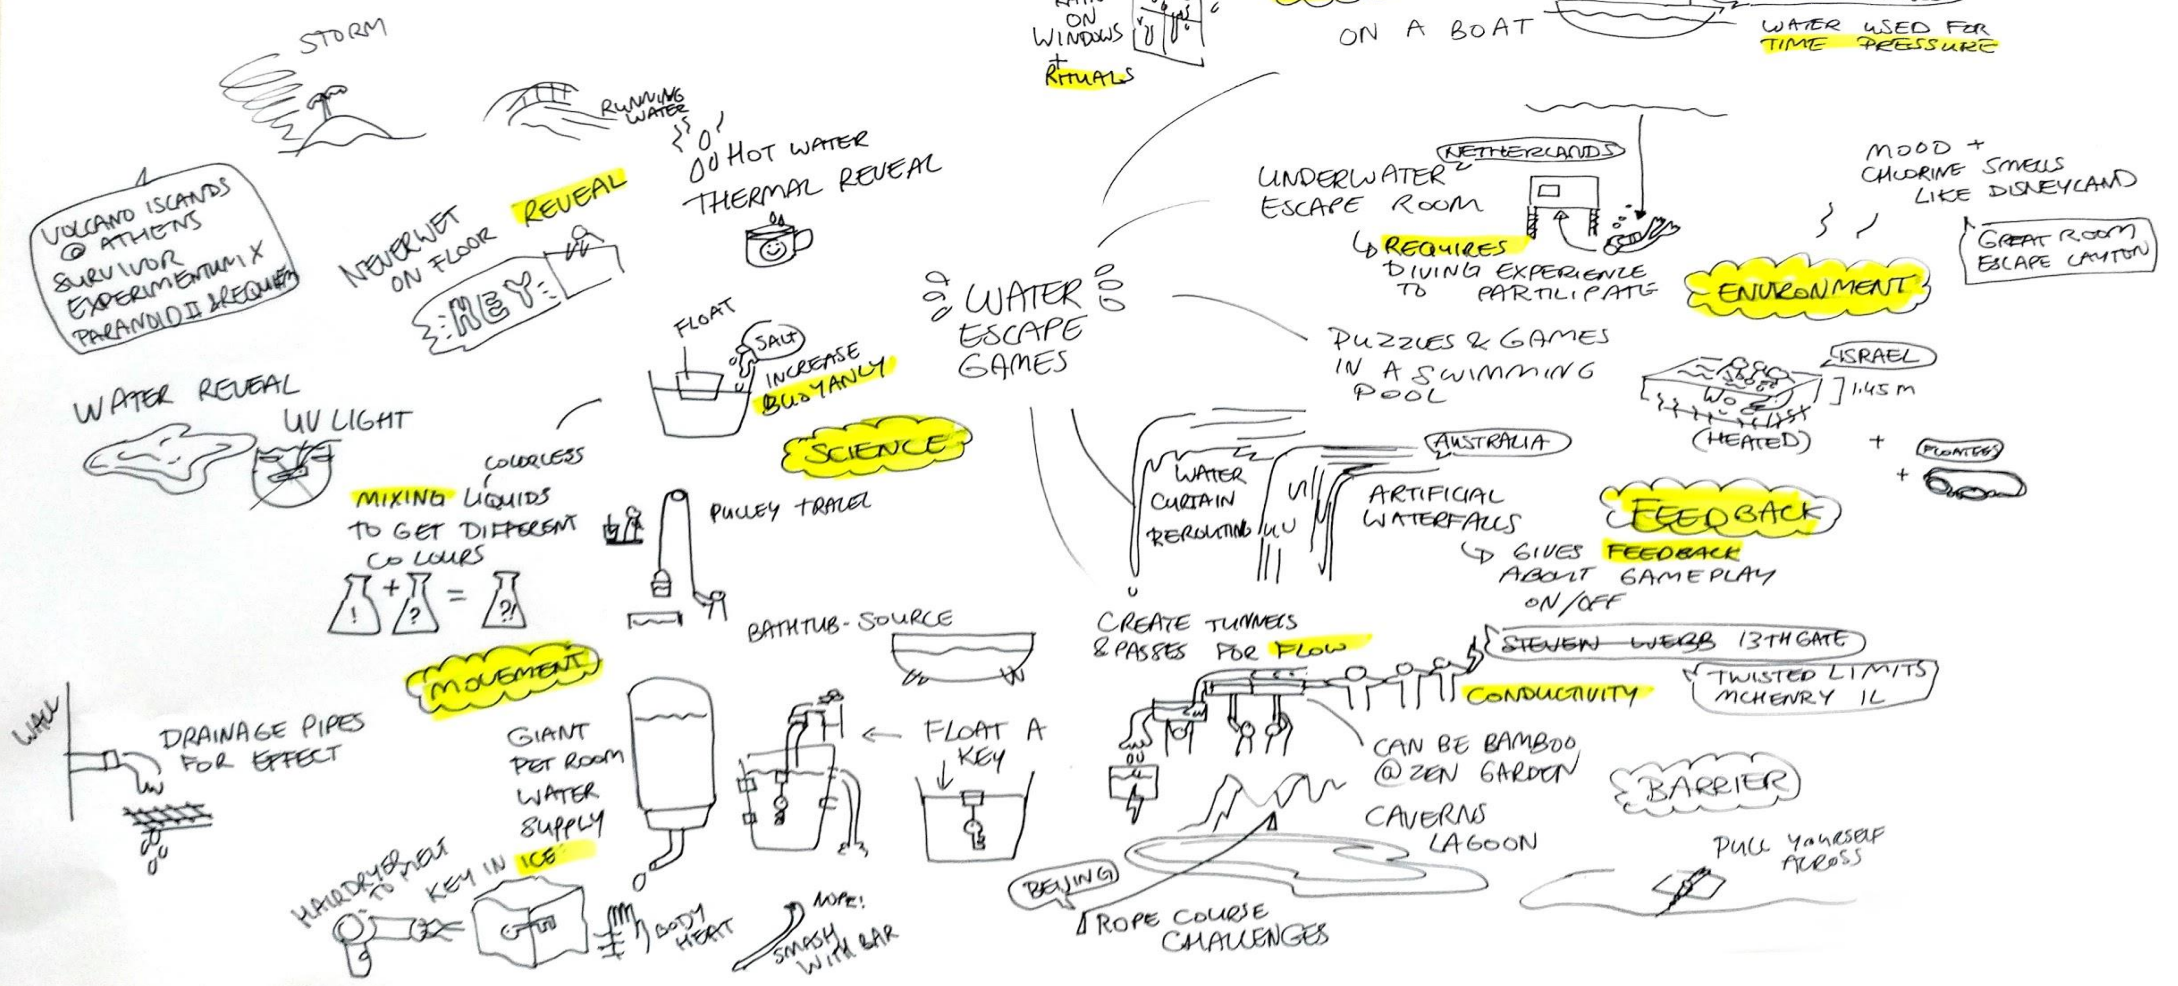 STORM
RUNNING
WATER
HOT WATER
THERMAL REVEAL
VOLCANO ISLANDS
@ ATHENS
SURVIVOR
EXPERIMENTUM X
PARANOID II & REQUIEM
NEVERWET
ON FLOOR REVEAL
HEY
WATER REVEAL
UV LIGHT
FLOAT
SALT
INCREASE
BUOYANCY
SCIENCE
COLORLESS
MIXING LIQUIDS
TO GET DIFFERENT
COLOURS
! + ? = ?!
PULLEY TRAVEL
MOVEMENT
BATHTUB-SOURCE
WALL
DRAINAGE PIPES
FOR EFFECT
GIANT
PET ROOM
WATER
SUPPLY
← FLOAT A
KEY
HAIRDRYER MELT
TO
KEY IN ICE
BODY
HEAT
NOPE!
SMASH
WITH BAR
WATER
ESCAPE
GAMES
ON
WINDOWS
+
RITUALS
ON A BOAT
WATER USED FOR
TIME PRESSURE
NETHERLANDS
UNDERWATER
ESCAPE ROOM
↳ REQUIRES
DIVING EXPERIENCE
TO PARTICIPATE
MOOD +
CHLORINE SMELLS
LIKE DISNEYLAND
GREAT ROOM
ESCAPE LAYTON
ENVIRONMENT
PUZZLES & GAMES
IN A SWIMMING
POOL
ISRAEL
1.45 m
(HEATED)
+
FLOATIES
+
WATER
CURTAIN
REROUTING
AUSTRALIA
ARTIFICIAL
WATERFALLS
↳ GIVES FEEDBACK
ABOUT GAMEPLAY
ON/OFF
FEEDBACK
CREATE TUNNELS
& PASSES FOR FLOW
STEVEN WEBB 13TH GATE
TWISTED LIMITS
MCHENRY IL
CONDUCTIVITY
CAN BE BAMBOO
@ ZEN GARDEN
BARRIER
CAVERNS
LAGOON
BEIJING
ROPE COURSE
CHALLENGES
PULL YOURSELF
ACROSS